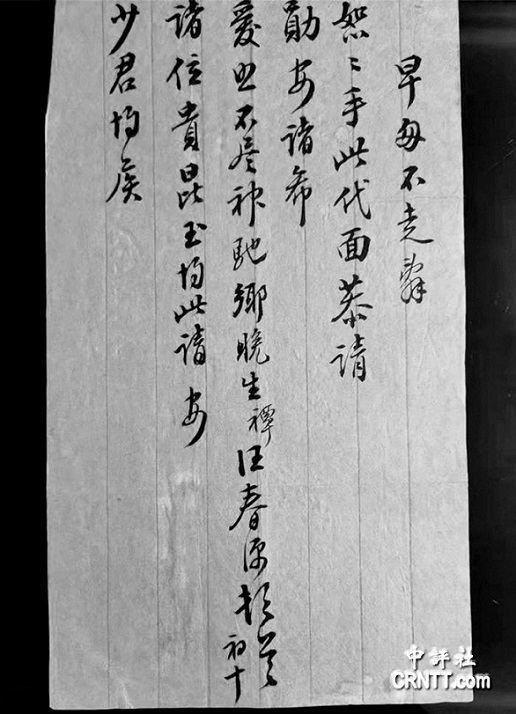 早不走辭
怱〻手此代面恭請
勛安諸希
愛照不盡神馳鄉晚生禫汪春源頓首
初十
諸位貴昆玉均此請 安
少君均矦
中評社
CRNTT.com